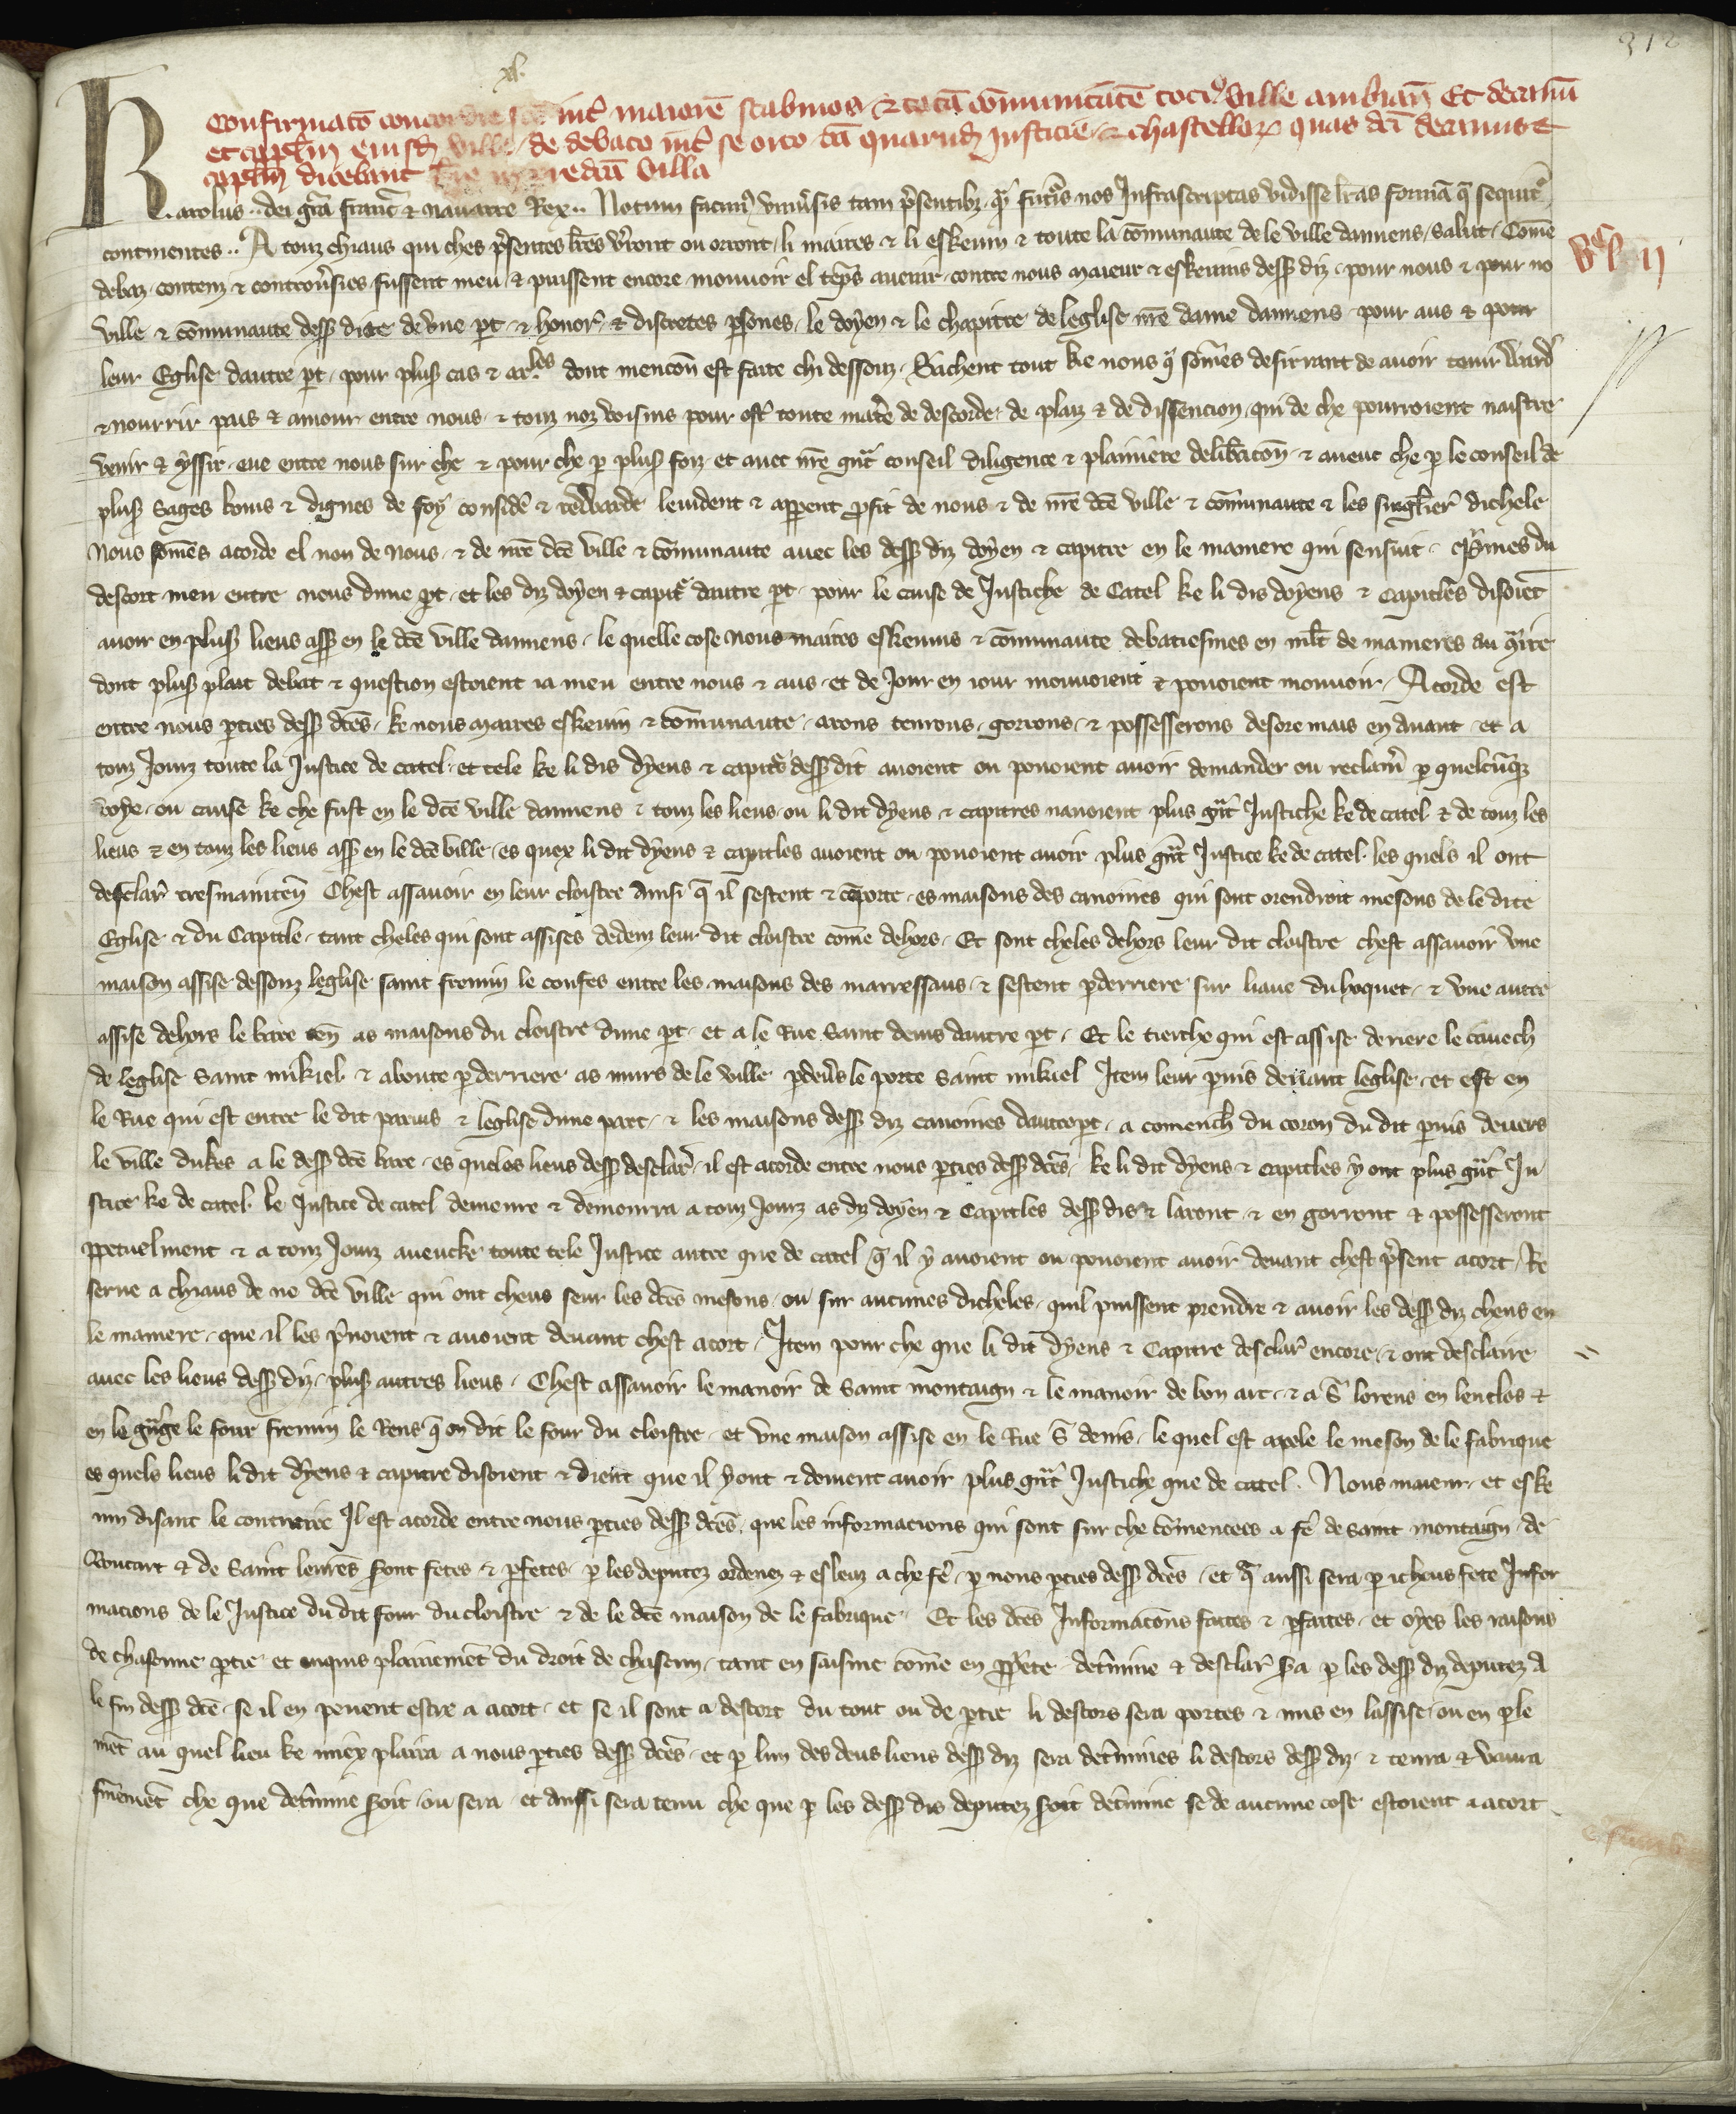 312
xl.
Confirmatō concordie inť maiorē scabinos & totā cōmunitatē tociꝰ ville ambiañ Et decanū
et capl̄m eiusđ ville de debato inť se orto cā quarūđ Iusticie & chastelloꝝ quas dc̄i decanus &
capl̄m dicebant in pređcā villa
Karolus .. dei gr̄a franc̄ & nauarre Rex .. Notum facimꝰ vniu̓sis tam p̄sentibꝫ q̓ꝫ futur̓s nos Infrascriptas vidisse lr̄as formā q̄ sequit̓
continentes .. A touz chiaus qui ches p̄sentes lr̄es v̓ront ou orront / li maires & li eskeuin & toute la cōmunaute de le ville damiens / salut / Cōme
debaz contenz & controu̓sies fussent meu & puissent encore mouuoir el tēps auenir contre nous maieur & eskeuins dessꝰ diz pour nous & pour no
ville & cōmunaute dessꝰ dite de vne ꝑt & honor̓ & discretes ꝑsones le doyen & le chapitre de leglise nr̄e dame damiens pour aus & pour
leur Eglise dautre ꝑt pour plusꝰ cas & arl̄es dont mencōn est faite chi dessouz Sachent tout ke nous q̓ sōmes desirrant de auoir tenir Ward̓
& nourrir pais & amour entre nous & touz noz voisins pour ost̓ toute mat̓e de descorde de plaiz & de dissencion qui de che pourroient naistre
venir & yssir eue entre nous sur che & pour che ꝑ plusꝰ foiz et auec nr̄e gn̄t conseil diligence & plainiere delib̓acōn & aueuc che ꝑ le conseil de
plusꝰ sages boins & dignes de foy consid̓e & reWarde leuident & apparent ꝓfit de nous & de nr̄e dc̄e ville & cōmunaute & les singl̄ier̓ dichele
Nous sōmes acorde el non de nous & de nr̄e dc̄e ville & cōmunaute auec les dessꝰ diz doyen & capitre en le maniere qui sensuit p̓mes du
descort meu entre nous dune ꝑt et les diz doyen & capit̓ dautre ꝑt pour le cause de Iustiche de Catel ke li dis doyens & Capitl̄es disoiēt
auoir en plusꝰ lieus assꝰ en le dc̄e ville damiens le quelle cose nous maires eskeuins & cōmunaute debatiesmes en mlt̄ de manieres au ꝯt̓re
dont plusꝰ plait debat & question estoient ia meu entre nous & aus et de Iour en iour mouuoient & pouoient mouuoir Acorde est
entre nous ꝑties dessꝰ dc̄es ke nous maires eskeuin & cōmunaute arons tenrons gorrons & possesserons desore mais en auant et a
touz Iourz toute la Iustice de catel et tele ke li dis dyens & capit̓s dessꝰ dit auoient ou pouoient auoir demander ou reclam̓ ꝑ quelcūqꝫ
voye ou cause ke che fust en le dc̄e ville damiens & touz les lieus ou li dit dyens & capitres nauoient plus gn̄t Iustiche ke de catel & de touz les
lieus & en touz les lieus assꝰ en le dc̄e ville es quex li dit dyens & capitles auoient ou pouoient auoir plus gn̄t Iustice ke de catel les quels il ont
desclar̓ tresmaintēn Chest assauoir en leur cloistre ainsi q̄ il sestent & cōporte es maisons des canoines qui sont orendroit mesons de le dite
Eglise & du Capitle tant cheles qui sont assises dedenz leur dit cloistre cōme dehors Et sont cheles dehors leur dit cloistre chest assauoir vne
maison assise dessouz leglise saint fremin le confes entre les maisons des marressaus & sestent ꝑderriere sur liaue du hoquet & vne autre
assise dehors le barre ten̄ as maisons du cloistre dune ꝑt et a le Rue Saint denis dautre ꝑt Et le tierche qui est assise deriere le cauech
de leglise Saint mikiel & aboute ꝑderriere as murs de le ville ꝑdeu̓s le porte Saint mikiel Item leur ꝑuis deuant leglise et est en
le Rue qui est entre le dit paruis & leglise dune part & les maisons dessꝰ diz canoines dautre ꝑt a comench̓ du coron du dit ꝑuis deuers
le ville dukes a le dessꝰ dc̄e bare es queles lieus dessꝰ desclar̓ il est acorde entre nous ꝑties dessꝰ dc̄es ke li dit dyens & Capitles y ont plus gn̄t Iu
stice ke de catel le Iustice de catel demeure & demourra a touz Iourz as diz doyen & Capitles dessꝰ dis & laront & en gorront & possesseront
ꝑpetuelment & a touz Iourz aueucke toute tele Iustice autre que de catel q̄ il y auoient ou pouoient auoir deuant chest p̄sent acort / Re
serue a chiaus de no dc̄e ville qui ont chens seur les dc̄es mesons ou sur aucunes dicheles quil puissent prendre & auoir les dessꝰ diz chens en
le maniere que il les p̄noient & auoient deuant chest acort Item pour che que li dit dyens & Capitre desclar̓ encore & ont desclaire
auec les lieus dessꝰ diz plusꝰ autres lieus Chest assauoir le manoir de Saint montaign & le manoir de bon art & a S̄ lorens en lenclos &
en le gn̄ge le four fremin le Rens q̄ on dit le four du cloistre et vne maison assise en le Rue S̄ denis le quel est apele le meson de le fabrique
es quels lieus li dit dyens & capitre disoient & dient que il y ont & doiuent auoir plus gn̄t Iustiche que de catel Nous maieur et eske
uin disant le contraire Il est acorde entre nous ꝑties dessꝰ dc̄es que les informacions qui sont sur che cōmencees a fe̓ de saint montaign de
Boutart & de Saint leurēs sont fetes & ꝑfetes ꝑ les deputez ordenez & esleuz a che fe̓ ꝑ nous ꝑties dessꝰ dc̄es et q̄ aussi sera ꝑ icheus fete Infor
macions de le Iustice du dit four du cloistre & de le dc̄e maison de le fabrique Et les dc̄es Informacōns faites & ꝑfaites et oyes les raisons
de chascune ꝑtie et enquis plainiemēt du droit de chascun tant en saisine cōme en ꝓp̓ete det̓mine & desclar̓ sa ꝑ les dessꝰ diz deputez a
le fin dessꝰ dc̄e se il en peuent estre a acort et se il sont a descort du tout ou de ꝑtie li descors sera portes & mis en lassise ou en ꝑle
mēt au quel lieu ke miex plaira a nous ꝑties dessꝰ dc̄es et ꝑ lun des deus lieus dessꝰ diz sera det̓mines li descors dessꝰ diz & tenra & vaura
fm̄emēt che que det̓mine soit ou sera et aussi sera tenu che que ꝑ les dessꝰ dis deputez soit det̓mine se de aucune cose estoient a acort